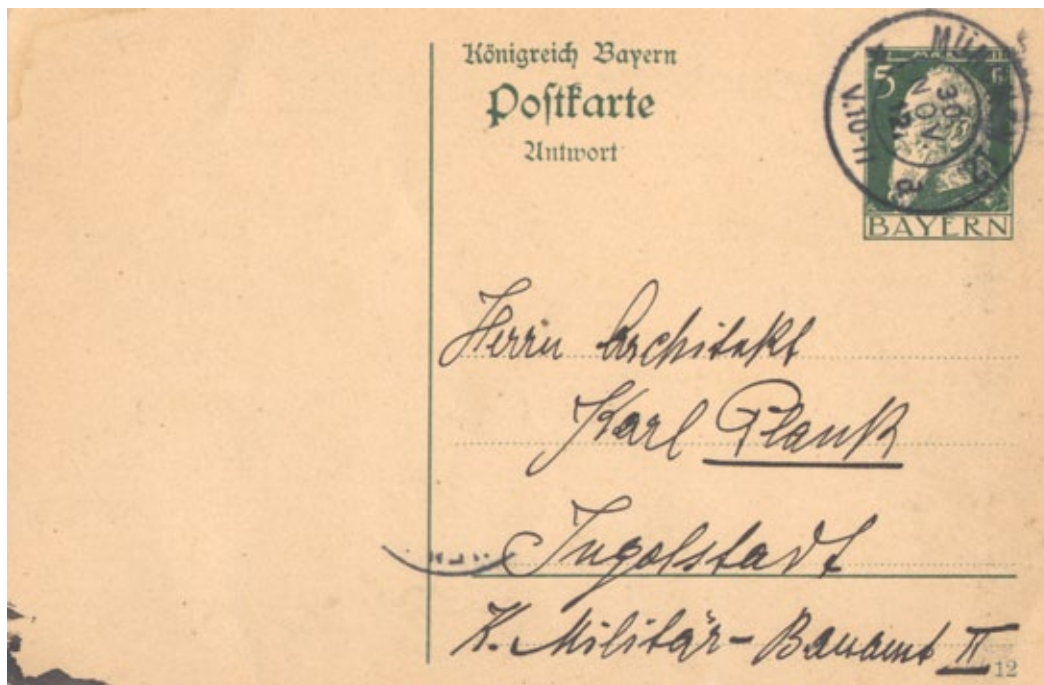 Königreich Bayern
Postkarte
Antwort
5
BAYERN
30
NOV
12
V.10-11
Herrn Architekt
Karl Plank
Ingolstadt
K. Militär-Bauamt II
12